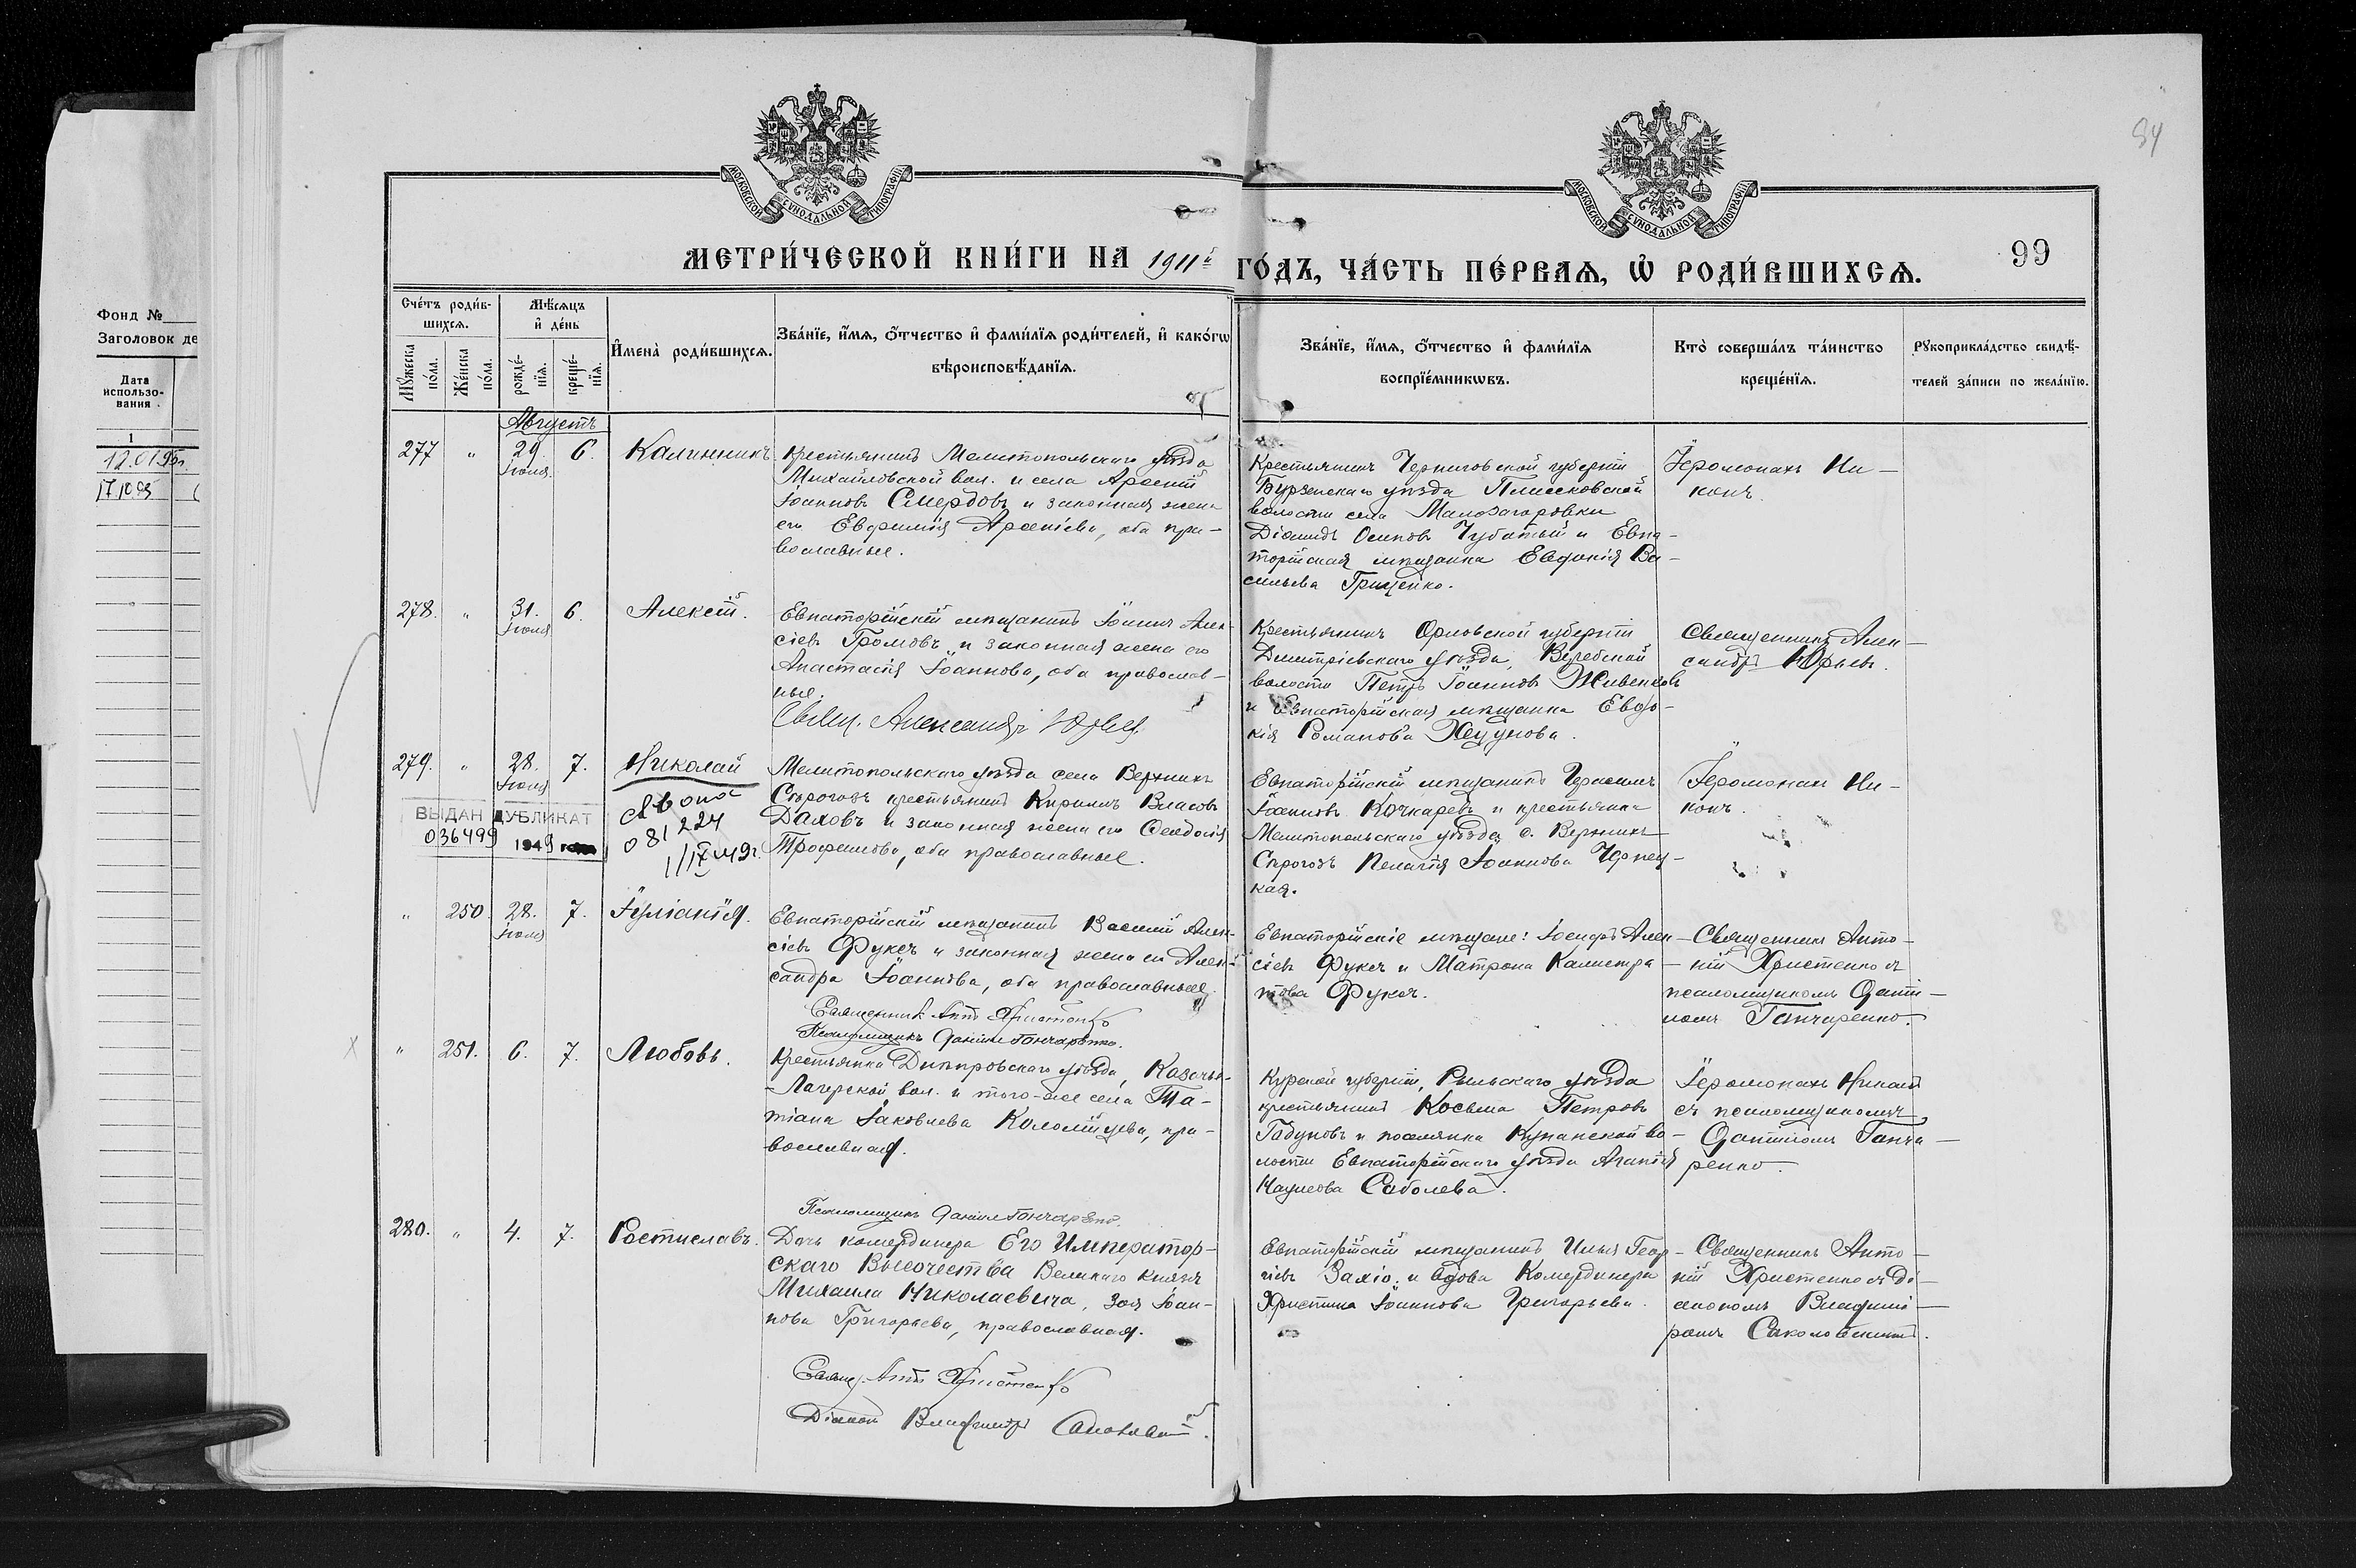 84
99
Фонд №
Заголовок де
Дата
использо-
вания
1
12.01.95г
МОСКОВСКОЙ СѴНОДАЛЬНОЙ ТИПОГРАФІИ
МОСКОВСКОЙ СѴНОДАЛЬНОЙ ТИПОГРАФІИ
МЕТРИ́ЧЕСКОЙ КНИ́ГИ НА 1911й ГО́ДЪ, ЧА́СТЬ ПЕ́РВАѦ, Ѡ҆ РОДИ́ВШИХСѦ.
Сче́тъ роди́в-
шихсѧ.
Мꙋ́жеска по́ла.
Же́нска по́ла.
Мѣ́сѧцъ
и҆ де́нь
рожде́-
нїѧ.
креще́-
нїѧ.
И҆мена̀ роди́вшихсѧ.
Зва́нїе, и҆́мѧ, ѻ҆́тчество и҆ фами́лїѧ роди́телей, и҆ како́гѡ
вѣроисповѣ́данїѧ.
Зва́нїе, и҆́мѧ, ѻ҆́тчество и҆ фами́лїѧ
воспрїе́мникѡвъ.
Кто̀ соверша́лъ та́инство
креще́нїѧ.
Рꙋкоприкла́дство свидѣ́-
телей за́писи по жела́нїю.
Августъ
277 " 29 Іюля 6. Калинникъ
Крестьянинъ Мелитопольскаго уѣзда
Михайловской вол. и села Арсеній
Іоанновъ Смердовъ и законная жена
его Евфимія Арсеніева, оба пра-
вославные.
Крестьянинъ Черниговской губерніи
уѣзда Плисковской
волости села Малозагоровки
Діомидъ Осиповъ Чубатый и Евпа-
торійская мѣщанка Евдокія Ва-
сильева Грищенко.
Іеромонахъ Ни-
конъ.
278. " 31. Іюля 6. Алексій.
Евпаторійскій мѣщанинъ Іоаннъ Алек-
сіевъ Громовъ и законная жена его
Анастасія Іоаннова, оба православ-
ные.
Свящ. Александръ Юрьев
Крестьянинъ Орловской губерніи
Дмитріевскаго уѣзда,
волости Петръ Іоанновъ Живенковъ
и Евпаторійская мѣщанка Евдо-
кія Романова
Священникъ Алек-
сандръ Юрьевъ.
279. " 28. Іюля 7. Николай
ВЫДАН ДУБЛИКАТ
036499 1949
081224
1/IX 49г.
Мелитопольскаго уѣзда села Верхнихъ
Сѣрогозъ крестьянинъ Кириллъ Власовъ
Даховъ и законная жена его Ѳеодосія
Трофимова, оба православные.
Евпаторійскій мѣщанинъ Герасимъ
Іоанновъ Кочкаревъ и крестьянка
Мелитопольскаго уѣзда с. Верхнихъ
Сѣрогозъ Пелагія Іоаннова Чернец-
кая.
Іеромонахъ Ни-
конъ.
" 250. 28. Іюля 7. Іуліанія.
Евпаторійскій мѣщанинъ Василій Алек-
сіевъ Фуксъ и законная жена его Алек-
сандра Іоаннова, оба православные.
Священникъ Антоній Христенко
Псаломщикъ Даніилъ Ганчаренко.
Евпаторійскіе мѣщане: Іосифъ Алек-
сіевъ Фуксъ и Матрона Калистра-
това Фуксъ.
Священникъ Анто-
ній Христенко съ
псаломщикомъ Даніи-
ломъ Ганчаренко.
" 251. 6. 7. Любовь.
Крестьянка Днѣпровскаго уѣзда, Казачье-
-Лагерской вол. и того-же села Та-
тіана Іаковлева Коломійцева, пра-
вославная.
Псаломщикъ Даніилъ Ганчаренко.
Курской губерніи, Рыльскаго уѣзда
крестьянинъ Косьма Петровъ
Гадуновъ и поселянка Курманской во-
лости Евпаторійскаго уѣзда Агапія
Наумова Соболева.
Іеромонахъ Николай
съ псаломщикомъ
Даніиломъ Ганча-
ренко.
280. " 4. 7. Ростиславъ.
Дочь камердинера Его Император-
скаго Высочества Великаго Князя
Михаила Николаевича, Зоя Іоан-
нова Григорьева, православная.
Свящ. Антоній Христенко
Діаконъ Владиміръ Соколовскій.
Евпаторійскій мѣщанинъ Илья Геор-
гіевъ Захіо. и вдова Камердинера
Христина Іоаннова Григорьева.
Священникъ Анто-
ній Христенко съ Ді-
акономъ Владими-
ромъ Соколовскимъ.